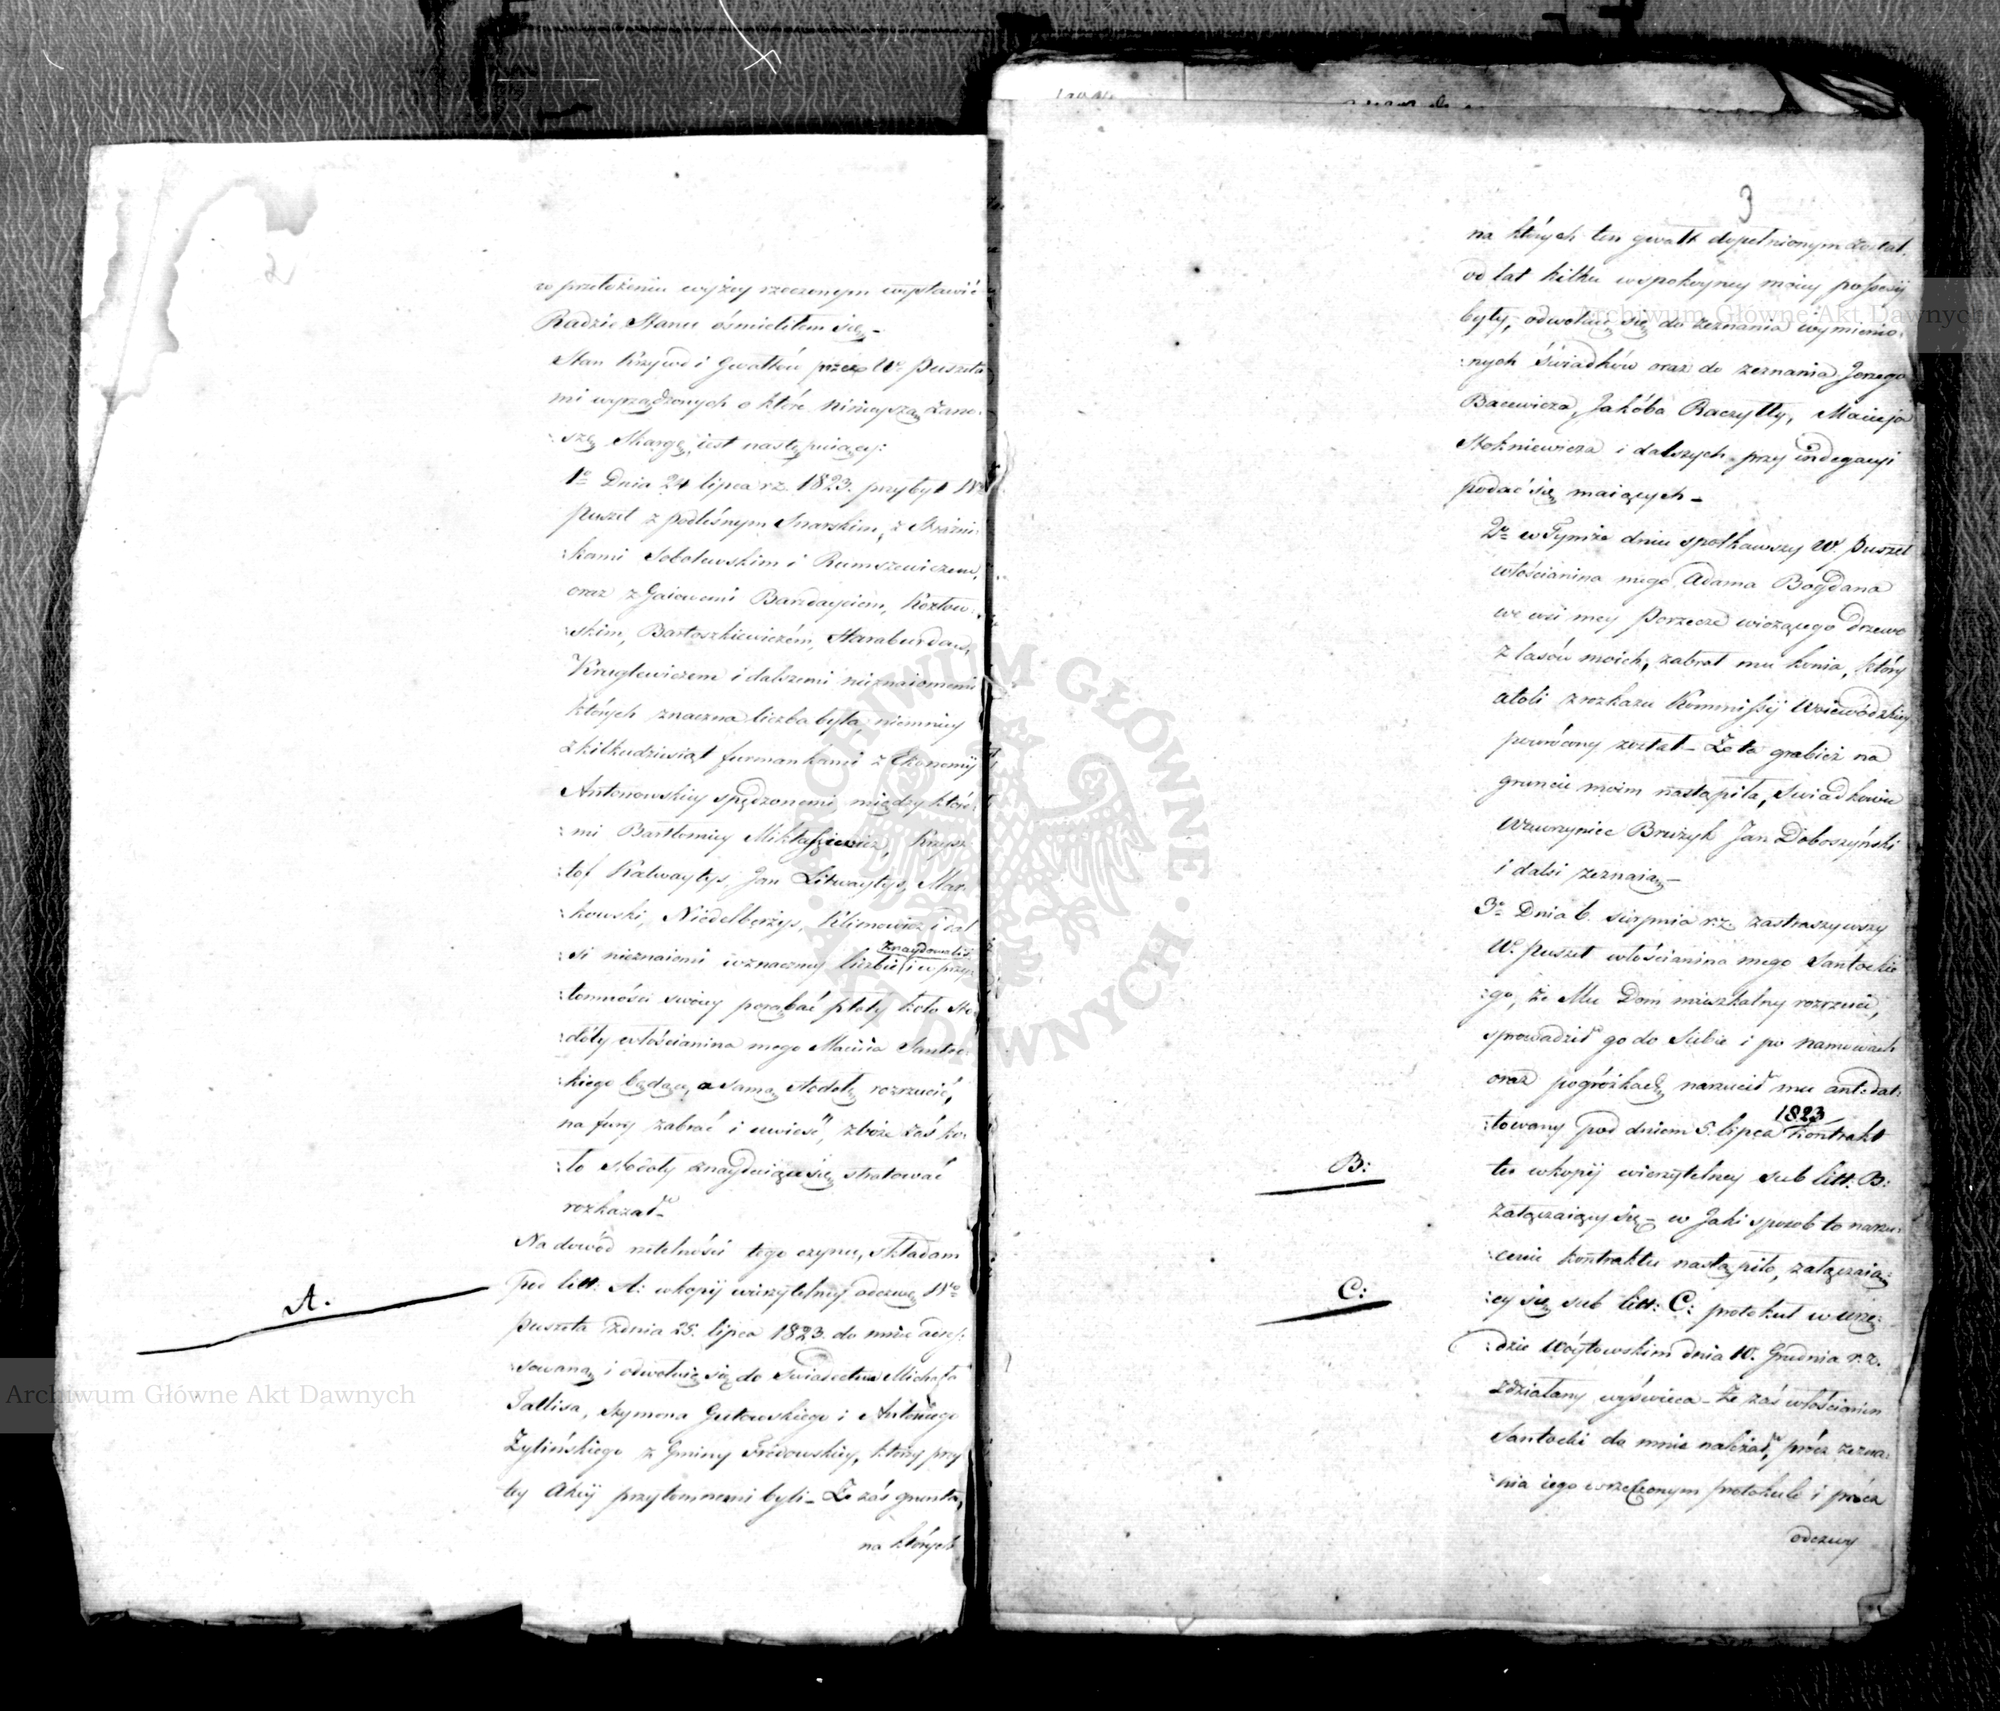 2
w przełożeniu wyżey rzeczonym wystawić
Radzie Stanu ośmieliłem się –
Stan Krzywd i Gwałtów przez W° Puszeta
mi wyrządzonych o które ninieyszą zano-
:szę Skargę, iest następuiący:
1° Dnia 24 lipca r.z. 1823. przybył W°
Puszet z podleśnym Snarskim, z Strażni-
:kami Sobolewskim i Rumszewiczem,
oraz z Gaiowemi Bardayciem, Kozłow-
:skim, Bartoszkiewiczém, Staraburdą,
Kruglewiczem i dalszemi nieznaiomemi
których znaczna liczba była, niemniey
z kilkudziesiąt furmankami z Ekonomij
Antonowskiey spędzonemi, między któré-
:mi Bartłomiey Mikłaszewicz, Krysz-
:tof Kalwaytys, Jan Litwaytys, Mar-
:kowski, Niedelberżys, Klimowicz i dal
:si nieznaiomi w znaczney liczbie znaydowali się i w przy-
:tomności swoiey porąbać płoty koło sto-
:doły włościanina mego Macieia Santoc-
:kiego będące, a samą stodołę rozrzucić,
na fury zabrać i uwieść, zboże zaś ko-
:ło stodoły znayduiące się stratować
rozkazał –
Na dowód rzetelności tego czynu, składam
A.
pod litt: A: w kopij wierzytelney odezwę W°
Puszeta z dnia 25. lipca 1823. do mnie adres-
:sowaną i odwołuię się do świadectwa Michała
Tallisa, Szymona Gutowskiego i Antoniego
Żylińskiego z Gminy Frédowskiey, którzy przy
tey Akcij przytomnemi byli – Że zaś grunta,
na których
3
na których ten gwałt dopełnionym został,
od lat kilku w spokoyney moiey possessij
były, odwołuię się do zeznania wymienio-
:nych świadków oraz do zeznania Jerzego
Bacewicza, Jakóba Raczyłły, Macieja
Stokniewicza i dalszych przy indegacyi
podać się maiących –
2° w Tymże dniu spotkawszy W. Puszet
włościanina mego Adama Bogdana
we wsi mey Porzecze wiozącego drzewo
z lasów moich, zabrał mu konia, który
atoli z rozkazu Kommissij Woiewódzkiey
powrócony został – Że ta grabież na
gruncie moim nastąpiła, Świadkowie
Wawrzyniec Bruzyk Jan Doboszyński
i dalsi zeznaią –
3° Dnia 6. sierpnia r.z. zastraszywszy
W° Puszet włościanina mego Santockie
:go, że Mu Dom mieszkalny rozrzuci,
sprowadził go do Siebie i po namowach
oraz pogróżkach, narzucił mu antedat-
:towany pod dniem 5. lipca 1823 kontrakt
B:
tu w kopij wierzytelney sub litt: B:
załączaiący się – w Jaki sposób to narzu-
:cenie kontraktu nastąpiło, załączaią-
C:
:cy się sub litt: C: protokuł w Urzę-
:dzie Wóytowskim dnia 10. Grudnia r.z.
zdziałany wyświeca – że zaś włościanin
Santocki do mnie należał, prócz zezna-
:nia iego w rzeczonym protokule i prócz
odezwy
Archiwum Główne Akt Dawnych
Archiwum Główne Akt Dawnych
ARCHIWUM GŁÓWNE AKT DAWNYCH